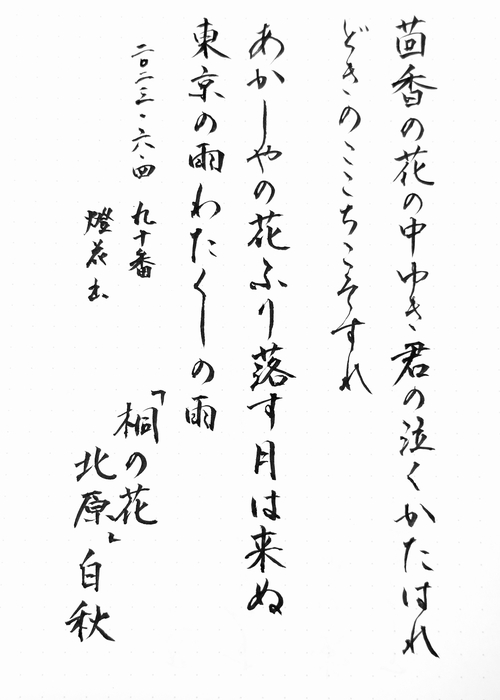 茴香の花の中ゆき君の泣くかたはれ
どきのここちこそすれ
あかしやの花ふり落す月は来ぬ
東京の雨わたくしの雨
二〇二三、六、四 九十番
燈花
「桐の花」
北原白秋